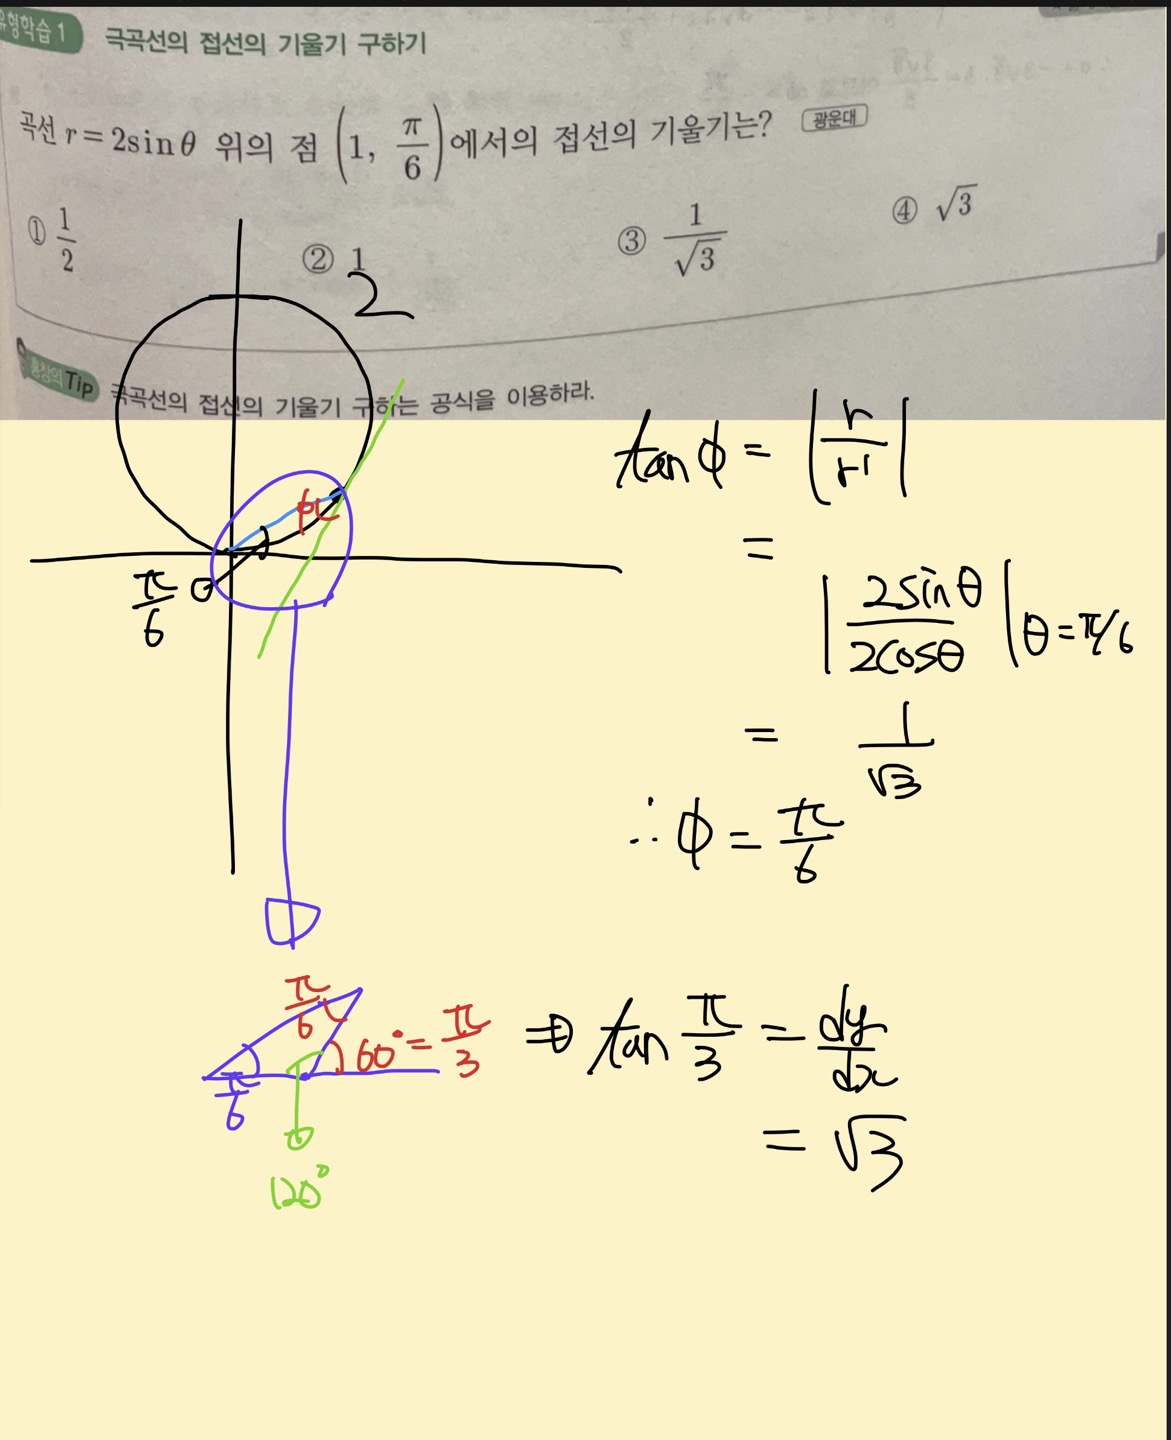 유형학습 1 극곡선의 접선의 기울기 구하기
곡선 r = 2sinθ 위의 점 (1, π/6)에서의 접선의 기울기는? 광운대
① 1/2 ② 1 ③ 1/√3 ④ √3
2
Tip 극곡선의 접선의 기울기 구하는 공식을 이용하라.
tan φ = |r/r'|
φ
π/6
= |2sinθ/2cosθ| θ=π/6
= 1/√3
∴ φ = π/6
π/6
π/6
60° = π/3
⇒ tan π/3 = dy/dx
= √3
120°